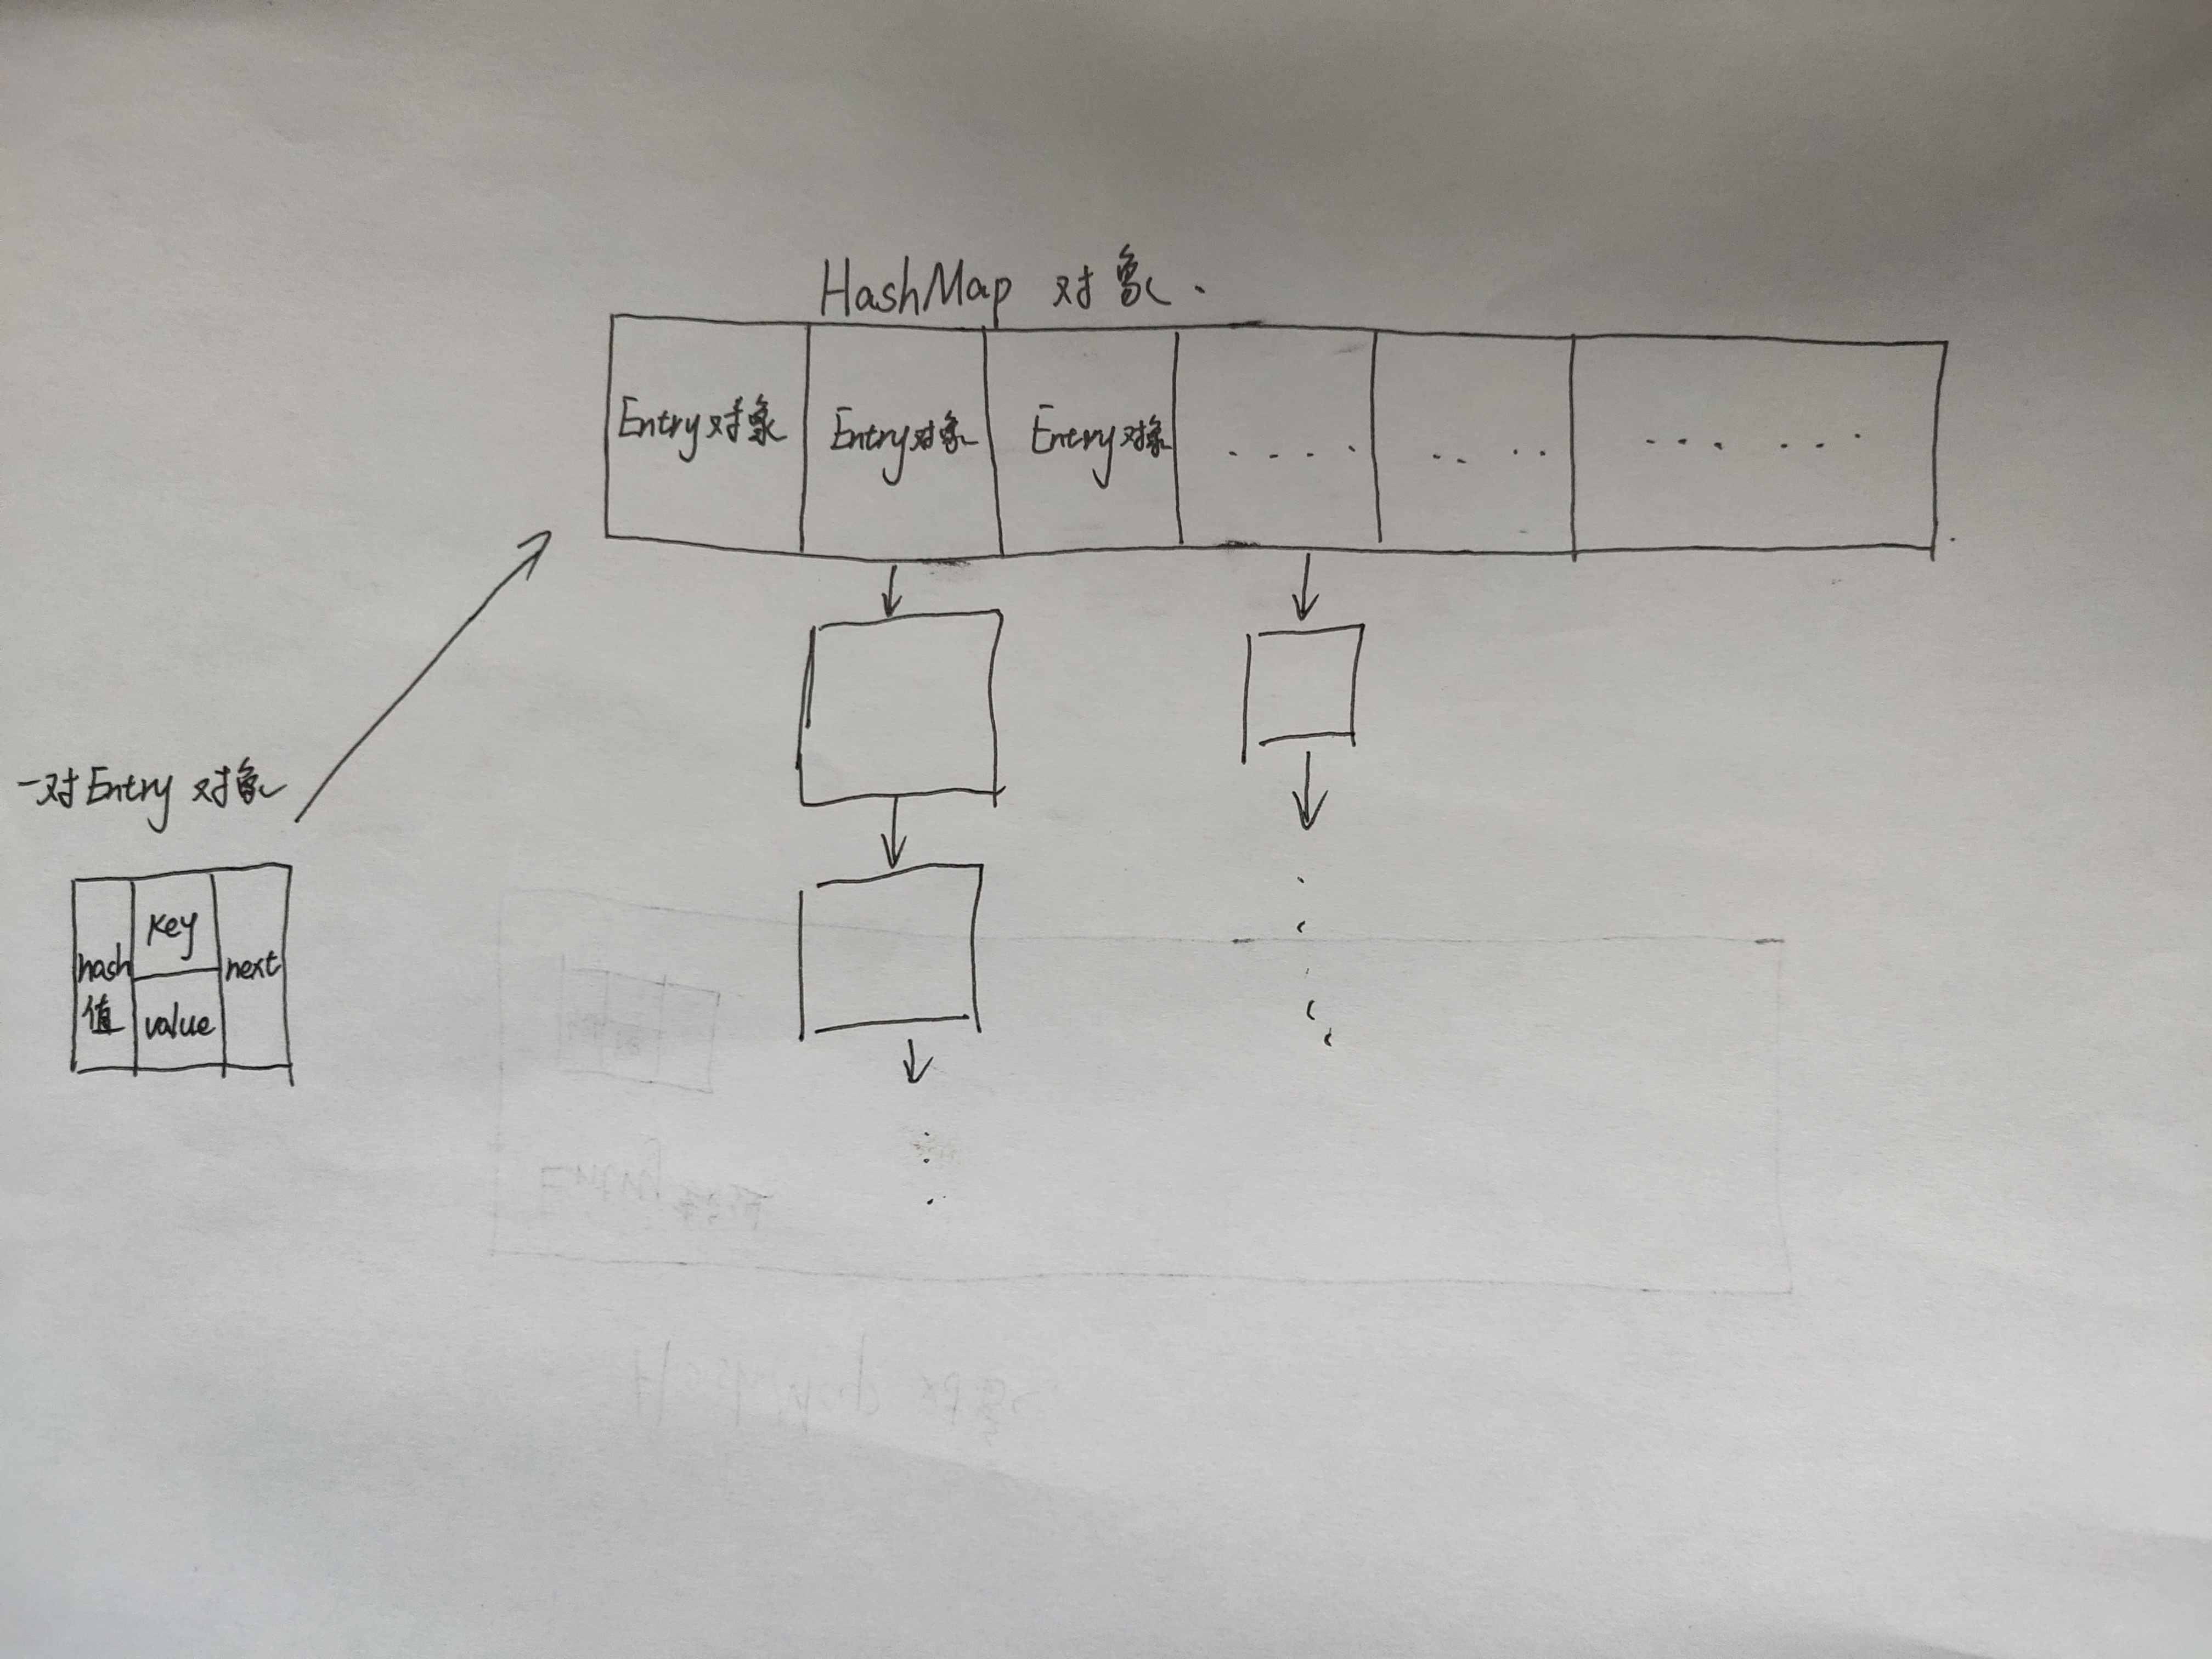 HashMap 对象.
Entry对象 Entry对象 Entry对象 .... .. .. ... ...
一对Entry 对象
hash值 key value next